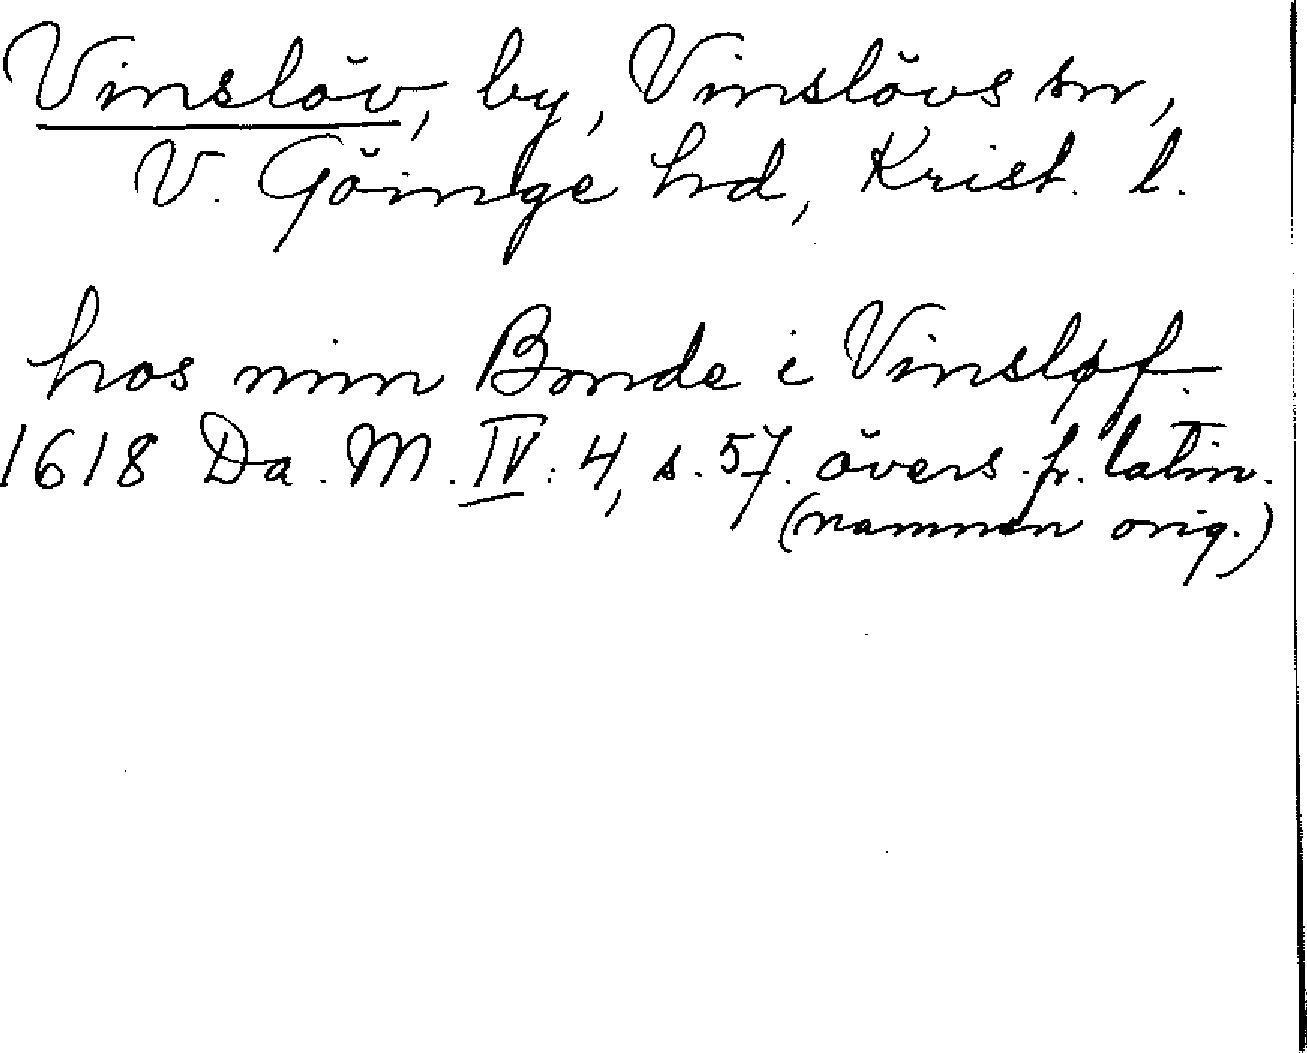 Vinslöv, by, Vinslövs sn,
V. Göinge hd, Krist. l.
hos min Bonde i Vinsløf.
1618 Da. M. IV: 4, s. 57. övers. fr. latin.
(namnen orig.)